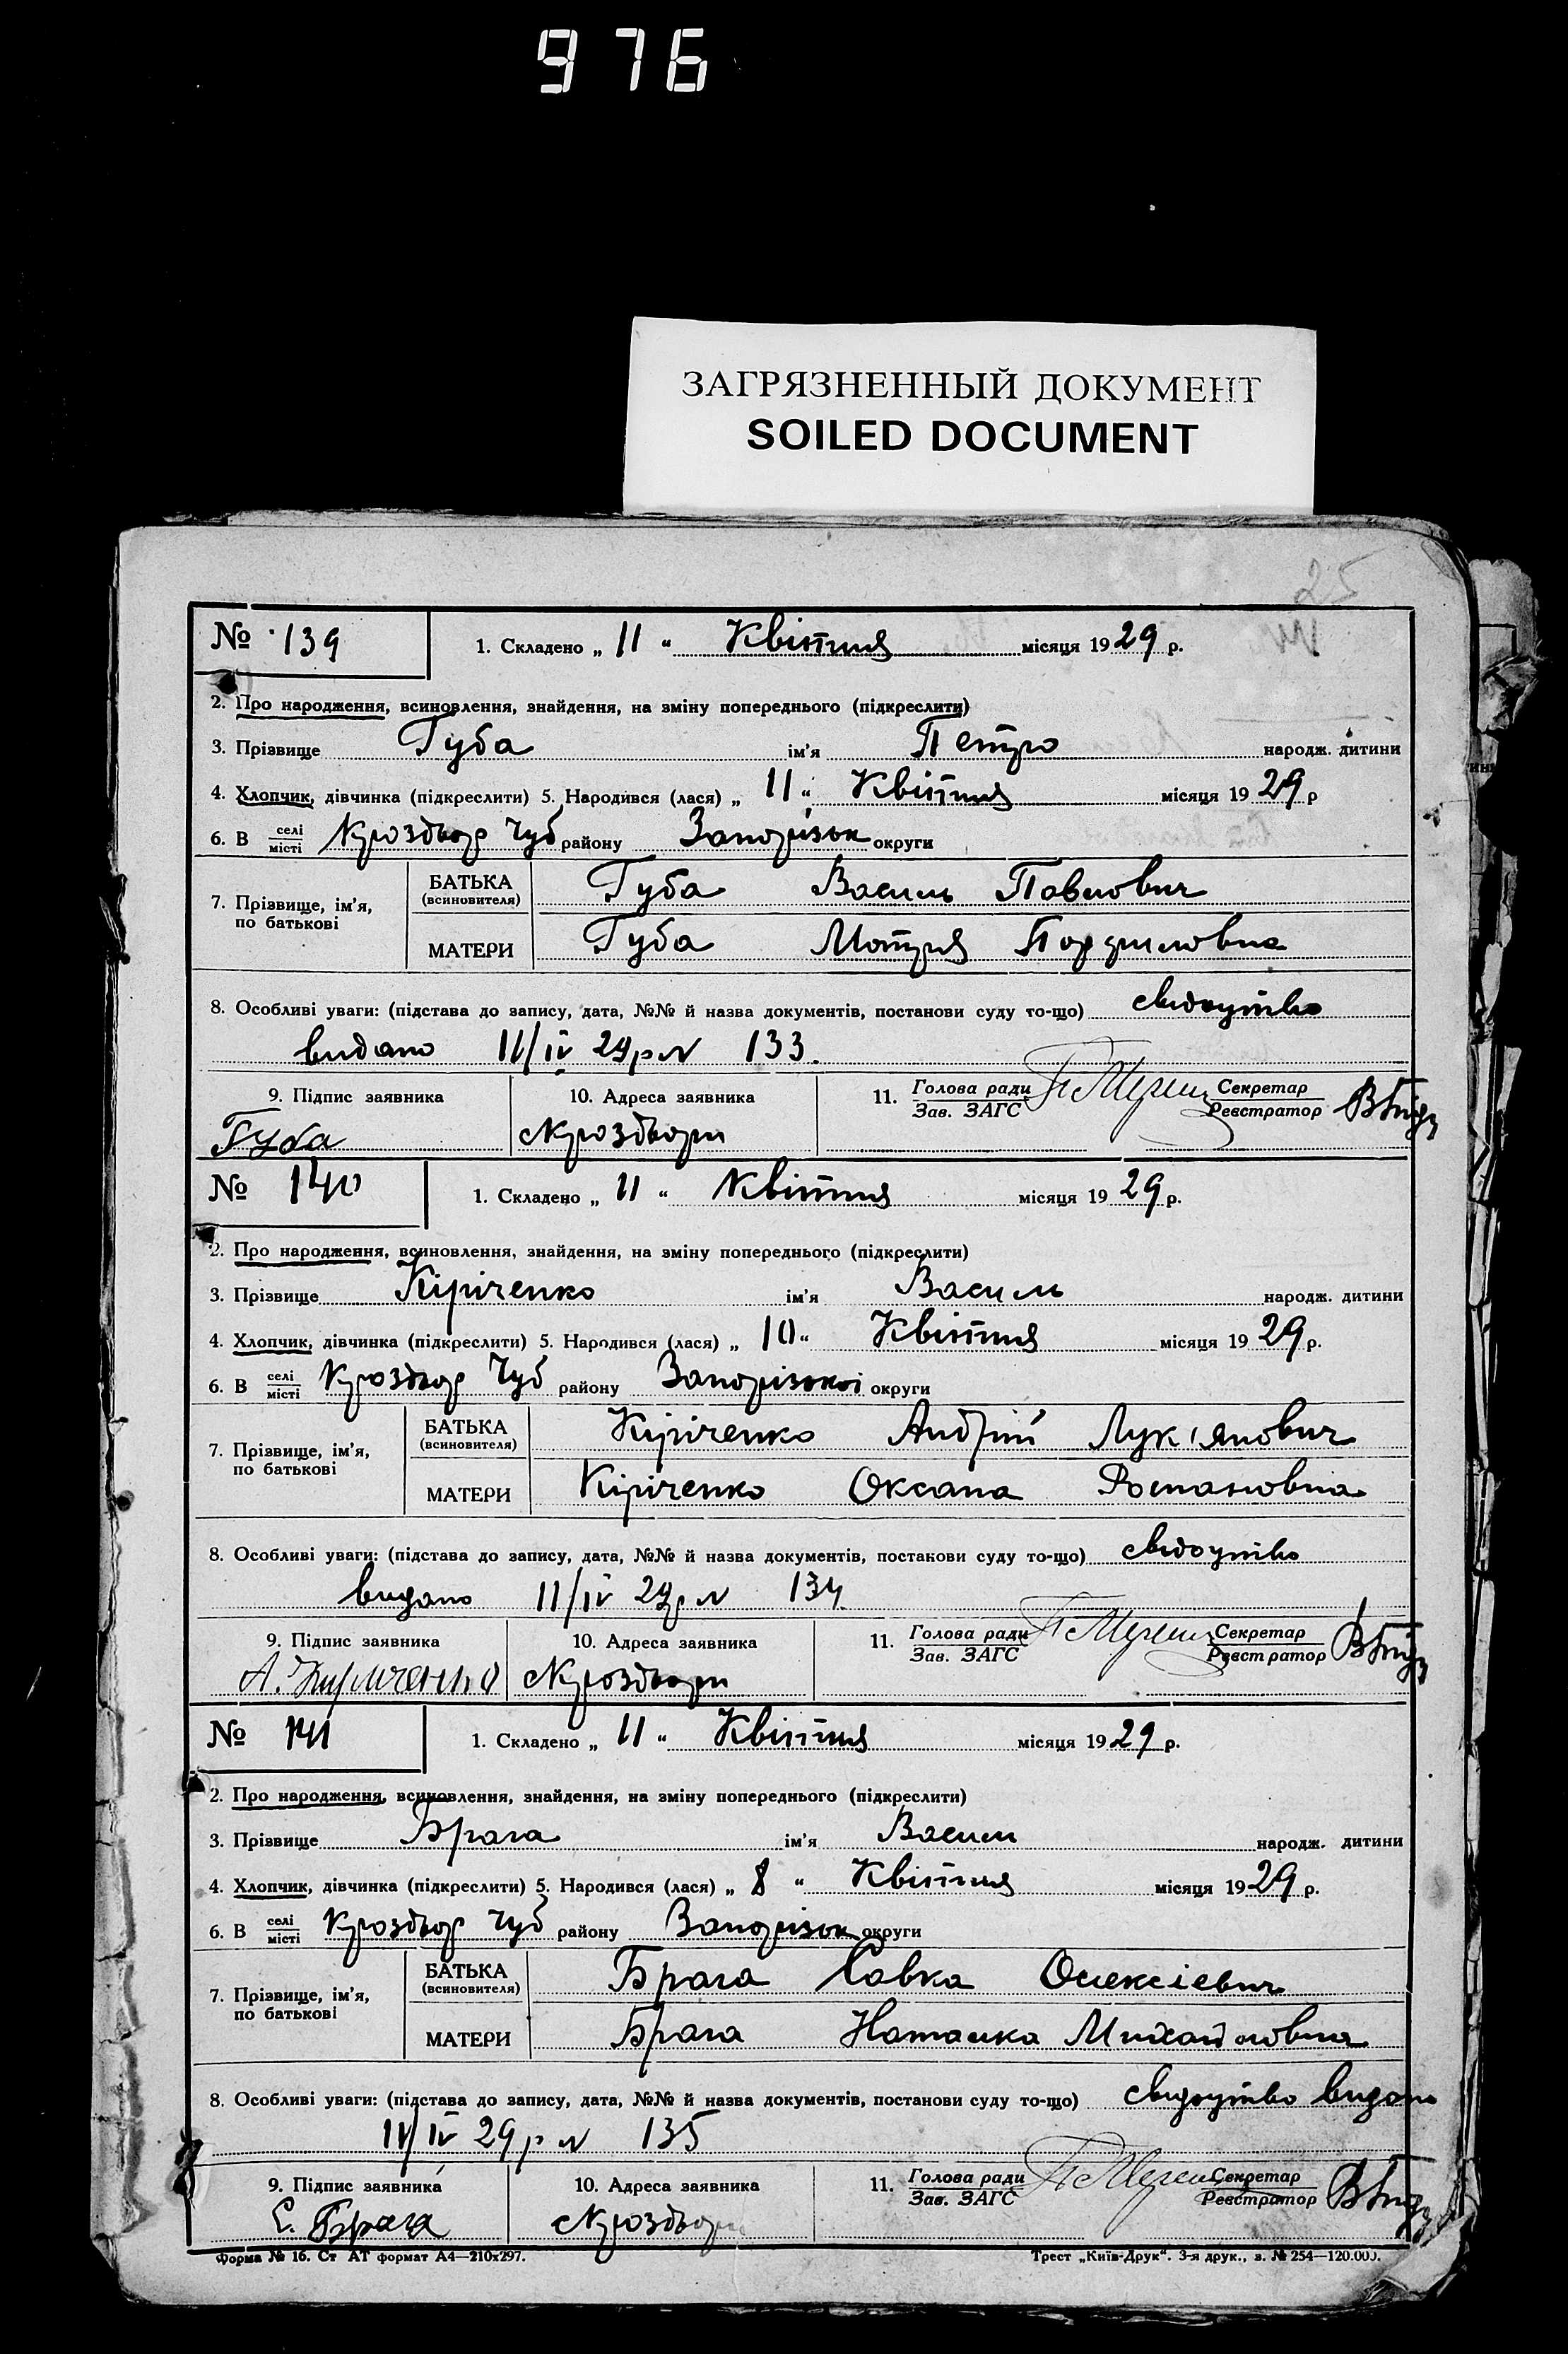 976
ЗАГРЯЗНЕННЫЙ ДОКУМЕНТ
SOILED DOCUMENT
25
№ 139 1. Складено „ 11 “ Квітня місяця 1929 р.
2. Про народження, всиновлення, знайдення, на зміну попереднього (підкреслити)
3. Прізвище Губа ім'я Петро народж. дитини
4. Хлопчик, дівчинка (підкреслити) 5. Народився (лася) „ 11 “ Квітня місяця 1929 р
6. В селі місті Кроздвор Чуб району Запорізьк округи
7. Прізвище, ім'я, по батькові
БАТЬКА (всиновителя) Губа Василь Павлович
МАТЕРИ Губа Мотря
8. Особливі уваги: (підстава до запису, дата, №№ й назва документів, постанови суду то-що) свідоцтво
видано 11/IV 29 р N 133.
9. Підпис заявника 10. Адреса заявника 11. Голова ради Зав. ЗАГС Секретар Реєстратор
Губа Кроздвори
№ 140 1. Складено „ 11 “ Квітня місяця 1929 р.
2. Про народження, всиновлення, знайдення, на зміну попереднього (підкреслити)
3. Прізвище Кіріченко ім'я Василь народж. дитини
4. Хлопчик, дівчинка (підкреслити) 5. Народився (лася) „ 10 “ Квітня місяця 1929 р.
6. В селі місті Кроздвор Чуб району Запорізької округи
7. Прізвище, ім'я, по батькові
БАТЬКА (всиновителя) Кіріченко Андрій Лук'янович
МАТЕРИ Кіріченко Оксана Романовна
8. Особливі уваги: (підстава до запису, дата, №№ й назва документів, постанови суду то-що) свідоцтво
видано 11/IV 29 р N 134.
9. Підпис заявника 10. Адреса заявника 11. Голова ради Зав. ЗАГС Секретар Реєстратор
А. Кириченко Кроздвори
№ 141 1. Складено „ 11 “ Квітня місяця 1929 р.
2. Про народження, всиновлення, знайдення, на зміну попереднього (підкреслити)
3. Прізвище Брага ім'я Василь народж. дитини
4. Хлопчик, дівчинка (підкреслити) 5. Народився (лася) „ 8 “ Квітня місяця 1929 р.
6. В селі місті Кроздвор Чуб району Запорізьк округи
7. Прізвище, ім'я, по батькові
БАТЬКА (всиновителя) Брага Савка Олексієвич
МАТЕРИ Брага Наталка Михайловна
8. Особливі уваги: (підстава до запису, дата, №№ й назва документів, постанови суду то-що) свидоцтво видано
11/IV 29 р N 135
9. Підпис заявника 10. Адреса заявника 11. Голова ради Зав. ЗАГС Секретар Реєстратор
С. Брага Кроздвори
Форма № 16. Ст АТ формат А4—210х297. Трест „Київ-Друк“. 3-я друк., з. № 254—120.000.